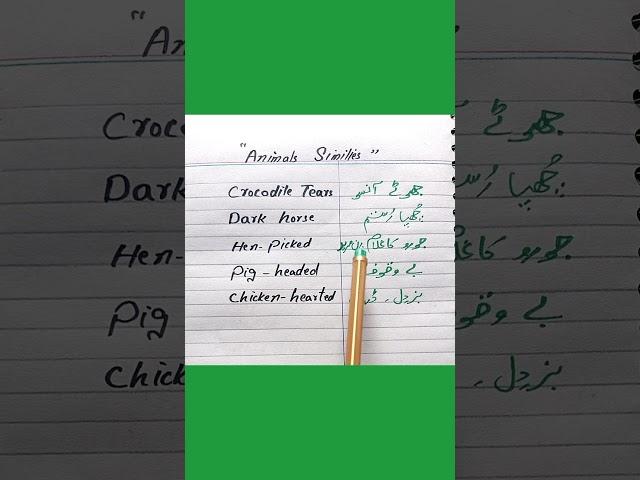 "Animals Similies"
Crocodile Tears جھوٹے آنسو
Dark horse چھپا رستم
Hen-Picked جورو کا غلام
Pig-headed بے وقوف
Chicken-hearted بزدل۔